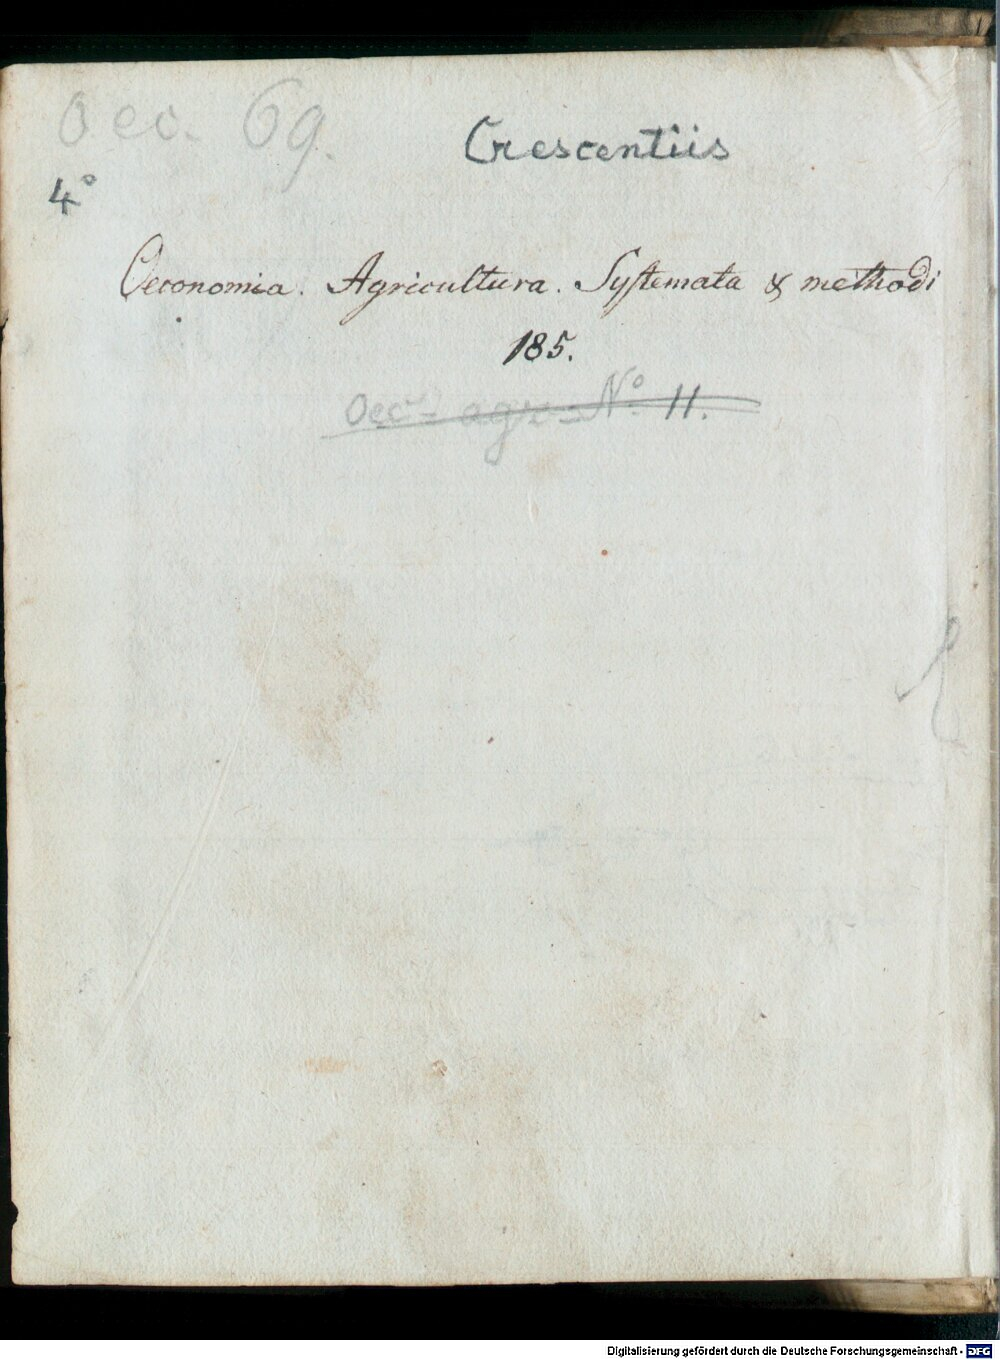 Oec. 69.
Crescentiis
4°
Oeconomia. Agricultura. Systemata & methodi
185.
Oec. agr. N° 11.
Digitalisierung gefördert durch die Deutsche Forschungsgemeinschaft - DFG